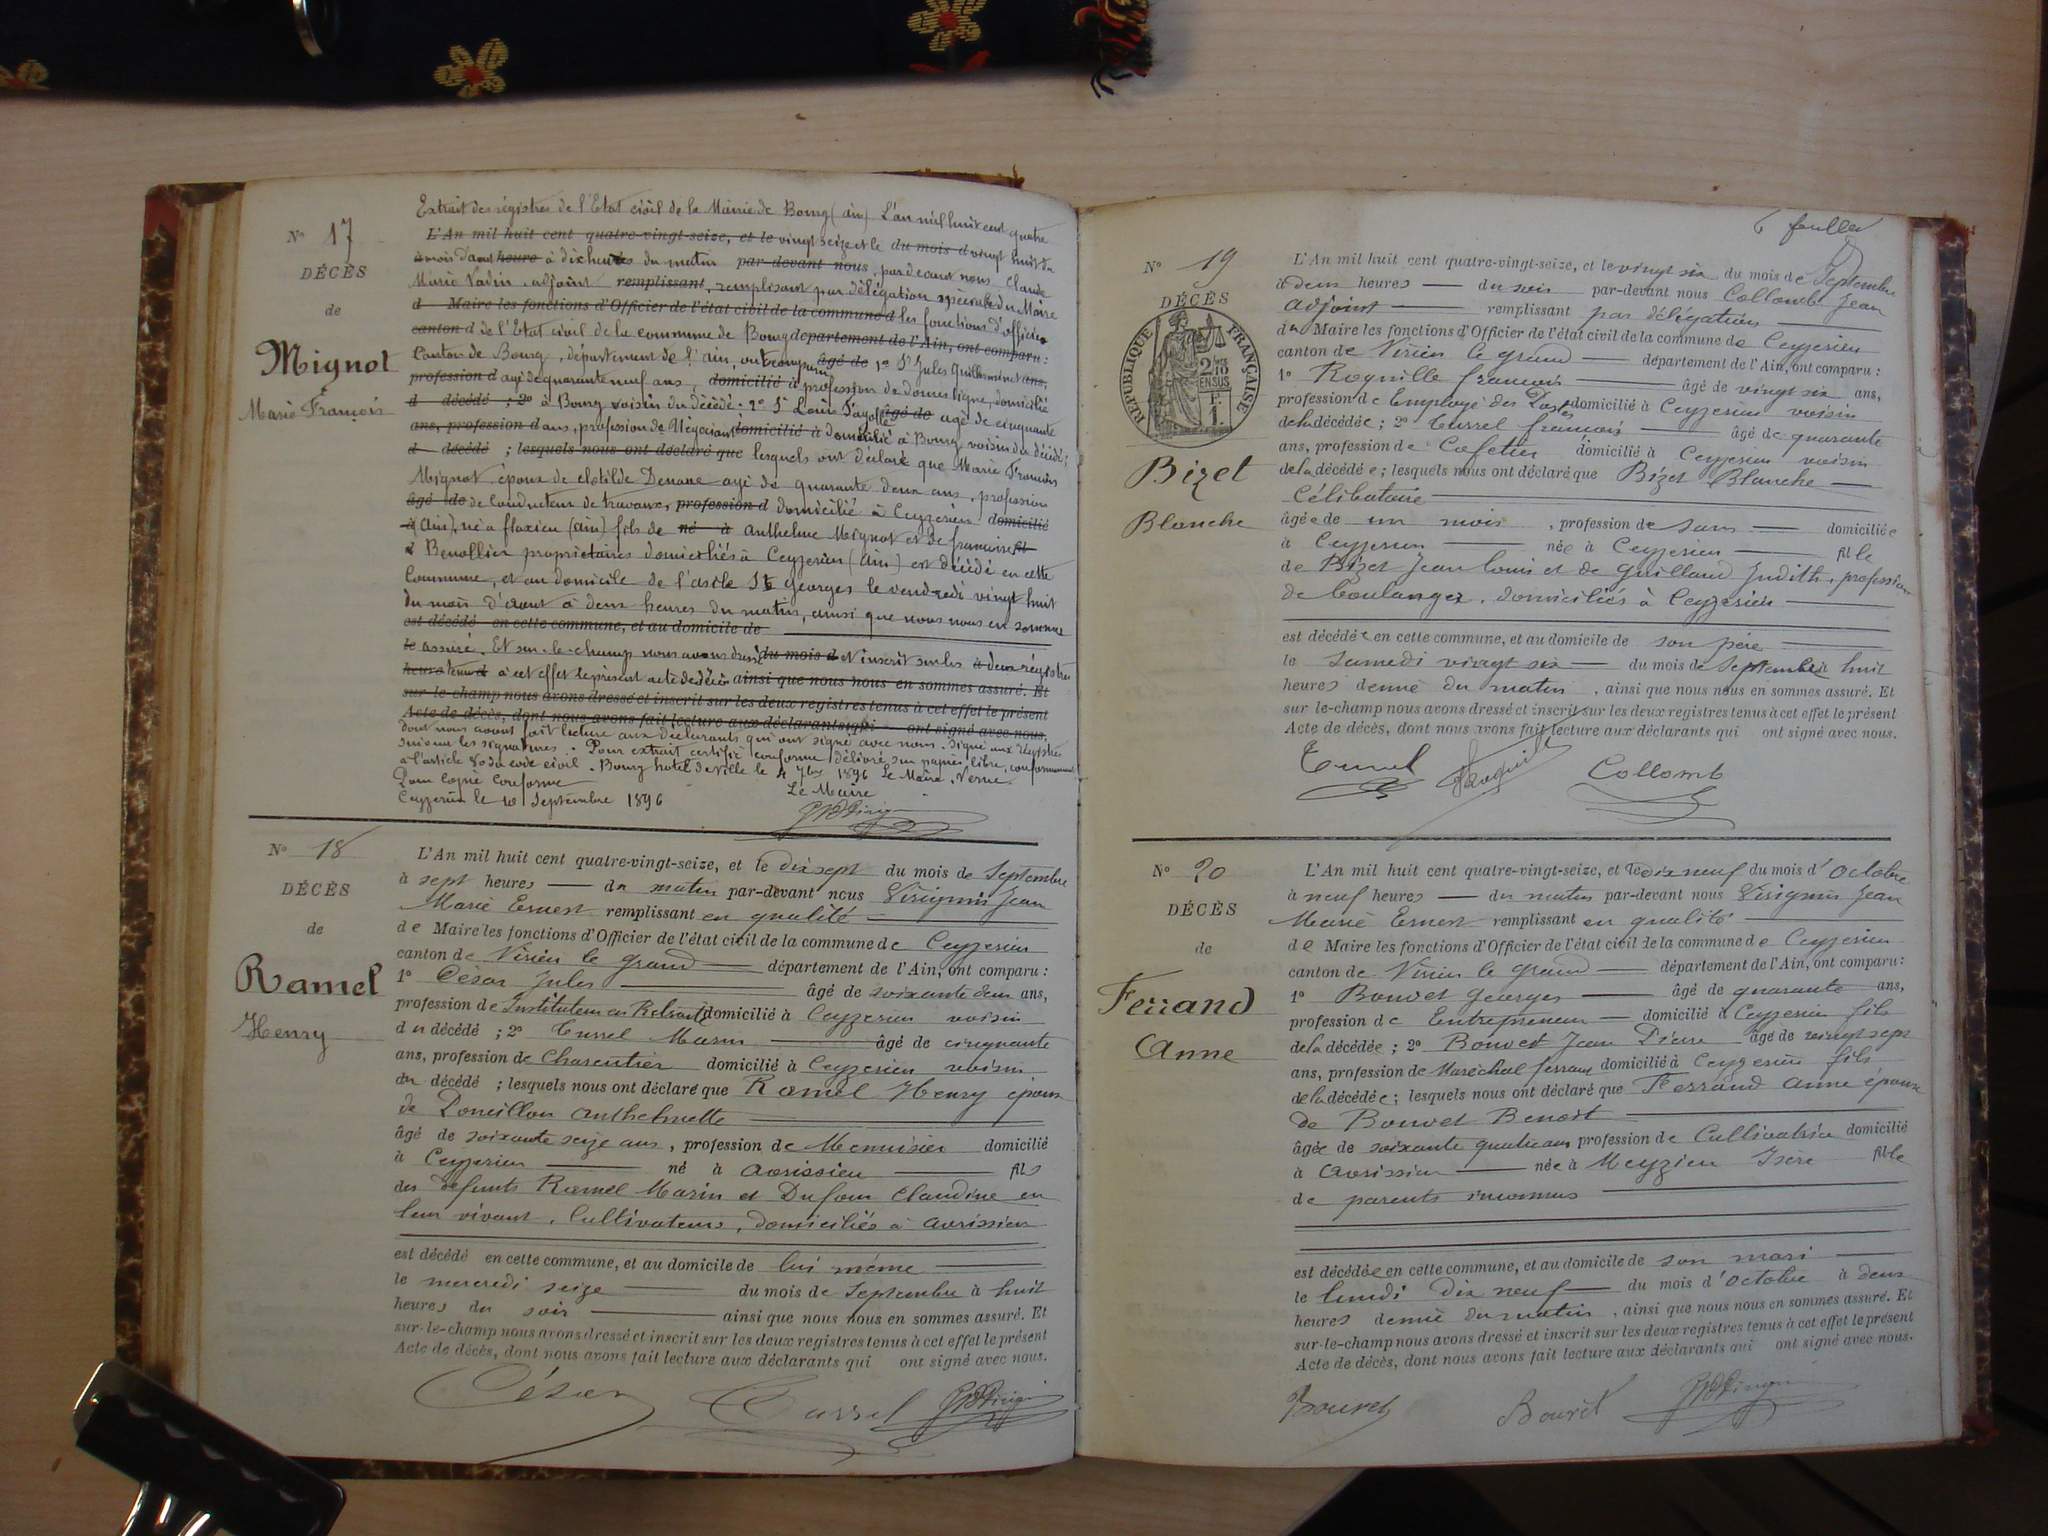 Extrait des régistres de l'Etat civil de la Mairie de Bourg (ain) L'an mil huit cent quatre
N° 17
L'An mil huit cent quatre-vingt-seize, et le vingt seize et le du mois d vingt huit du
mois d'aout heure à dix heures du matin par-devant nous, par devant nous Claude
DÉCÈS
Marie Vadin, adjoint remplissant, remplissant par délégation spéciale du Maire
d Maire les fonctions d'Officier de l'état civil de la commune d les fonctions d'officier
de
canton d de l'Etat civil de la commune de Bourg département de l'Ain, ont comparu :
Mignot
Canton de Bourg, département de l'ain, ont comparu âgé de 1° St Jules Guillerminet ans,
profession d agé de quarante neuf ans, domicilié à profession de domestique, domicilié
Marie François
d décédé ; 2° à Bourg voisin du décédé : 2° St Louis âgé de agé de cinquante
ans, profession d ans, profession de Négociant domicilié à domicilié à Bourg voisin du décédé ;
d décédé ; lesquels nous ont déclaré que lesquels ont déclaré que Marie François
Mignot époux de Clotilde Denane agé de quarante deux ans, profession
âgé de de Conducteur de travaux, profession d domicilié à Ceyzerieu domicilié
à (Ain), né a flaxieu (ain) fils de né à Anthelme Mignot et de françoise
Benollier propriétaires domiciliés à Ceyzerieu (Ain) est décédé en cette
Commune, et au domicile de l'asile St Georges le vendredi vingt huit
du mois d'aout à deux heures du matin, ainsi que nous nous en sommes
est décédé en cette commune, et au domicile de
le assuré. Et sur-le-champ nous avons dressé du mois d et inscrit sur les à deux régistres
heure tenus à cet effet le présent acte de décès ainsi que nous nous en sommes assuré. Et
sur-le-champ nous avons dressé et inscrit sur les deux registres tenus à cet effet le présent
Acte de décès, dont nous avons fait lecture aux déclarants qui ont signé avec nous.
dont nous avons fait lecture aux déclarants qui ont signé avec nous. Signé aux régistres
suivent les signatures. Pour extrait certifié conforme délivré sur papier libre, conformément
a l'article 80 du code civil. Bourg hotel de Ville le 4 7bre 1896 Le Maire, Verne
Pour copie conforme
Ceyzerieu le 10 Septembre 1896 Le Maire
N° 18
L'An mil huit cent quatre-vingt-seize, et le dix sept du mois de Septembre
DÉCÈS
à sept heures du matin par-devant nous Virignin Jean
Marie Ernest remplissant en qualité
de
de Maire les fonctions d'Officier de l'état civil de la commune de Ceyzerieu
canton de Virieu le Grand département de l'Ain, ont comparu :
Ramel
1° César Jules âgé de soixante deux ans,
profession de Instituteur en Retraite domicilié à Ceyzerieu voisin
Henry
du décédé ; 2° Turrel Marin âgé de cinquante
ans, profession de Charentier domicilié à Ceyzerieu voisin
du décédé ; lesquels nous ont déclaré que Ramel Henry époux
de Poncillon Anthelmette
âgé de soixante seize ans, profession de Menuisier domicilié
à Ceyzerieu né à Avrissieu fils
des défunts Ramel Marin et Dufour Claudine en
leur vivant, Cultivateurs, domiciliés à Avrissieu
est décédé en cette commune, et au domicile de lui même
le mercredi seize du mois de Septembre à huit
heures du soir ainsi que nous nous en sommes assuré. Et
sur-le-champ nous avons dressé et inscrit sur les deux registres tenus à cet effet le présent
Acte de décès, dont nous avons fait lecture aux déclarants qui ont signé avec nous.
César Turrel
6 feuillet
N° 19
L'An mil huit cent quatre-vingt-seize, et le vingt six du mois de Septembre
à deux heures du soir par-devant nous Collomb Jean
DÉCÈS
adjoint remplissant par délégation
RÉPUBLIQUE FRANÇAISE
2/10 EN SUS
1F
du Maire les fonctions d'Officier de l'état civil de la commune de Ceyzerieu
canton de Virieu le grand département de l'Ain, ont comparu :
1° Roquille françois âgé de vingt six ans,
profession de Employé des Postes domicilié à Ceyzerieu voisin
de la décédée ; 2° Turrel francois âgé de quarante
ans, profession de Cafetier domicilié à Ceyzerieu voisin
Bizet
de la décédée ; lesquels nous ont déclaré que Bizet Blanche
Célibataire
Blanche
âgée de un mois, profession de sans domiciliée
à Ceyzerieu née à Ceyzerieu fille
de Bizet Jean Louis et de Guilland Judith, profession
de boulanger, domiciliés à Ceyzerieu
est décédée en cette commune, et au domicile de son père
le samedi vingt six du mois de septembre à huit
heures demie du matin, ainsi que nous nous en sommes assuré. Et
sur le-champ nous avons dressé et inscrit sur les deux registres tenus à cet effet le présent
Acte de décès, dont nous avons fait lecture aux déclarants qui ont signé avec nous.
Turrel Roquille Collomb
N° 20
L'An mil huit cent quatre-vingt-seize, et le dix neuf du mois d'octobre
à neuf heures du matin par-devant nous Virignin Jean
DÉCÈS
Marie Ernest remplissant en qualité
de
de Maire les fonctions d'Officier de l'état civil de la commune de Ceyzerieu
canton de Virieu le grand département de l'Ain, ont comparu :
Ferrand
1° Bouvet Georges âgé de quarante ans,
profession de Entrepreneur domicilié à Ceyzerieu fils
Anne
de la décédée ; 2° Bouvet Jean Pierre âgé de vingt sept
ans, profession de Maréchal ferrant domicilié à Ceyzerieu fils
de la décédée ; lesquels nous ont déclaré que Ferrand Anne épouse
de Bouvet Benoit
âgée de soixante quatre ans profession de Cultivatrice domicilié
à Avrissieu née à Meyzieu Isère fille
de parents inconnus
est décédée en cette commune, et au domicile de son mari
le lundi Dix neuf du mois d'octobre à deux
heures demie du matin, ainsi que nous nous en sommes assuré. Et
sur-le-champ nous avons dressé et inscrit sur les deux registres tenus à cet effet le présent
Acte de décès, dont nous avons fait lecture aux déclarants qui ont signé avec nous.
Bouvet Bouvet